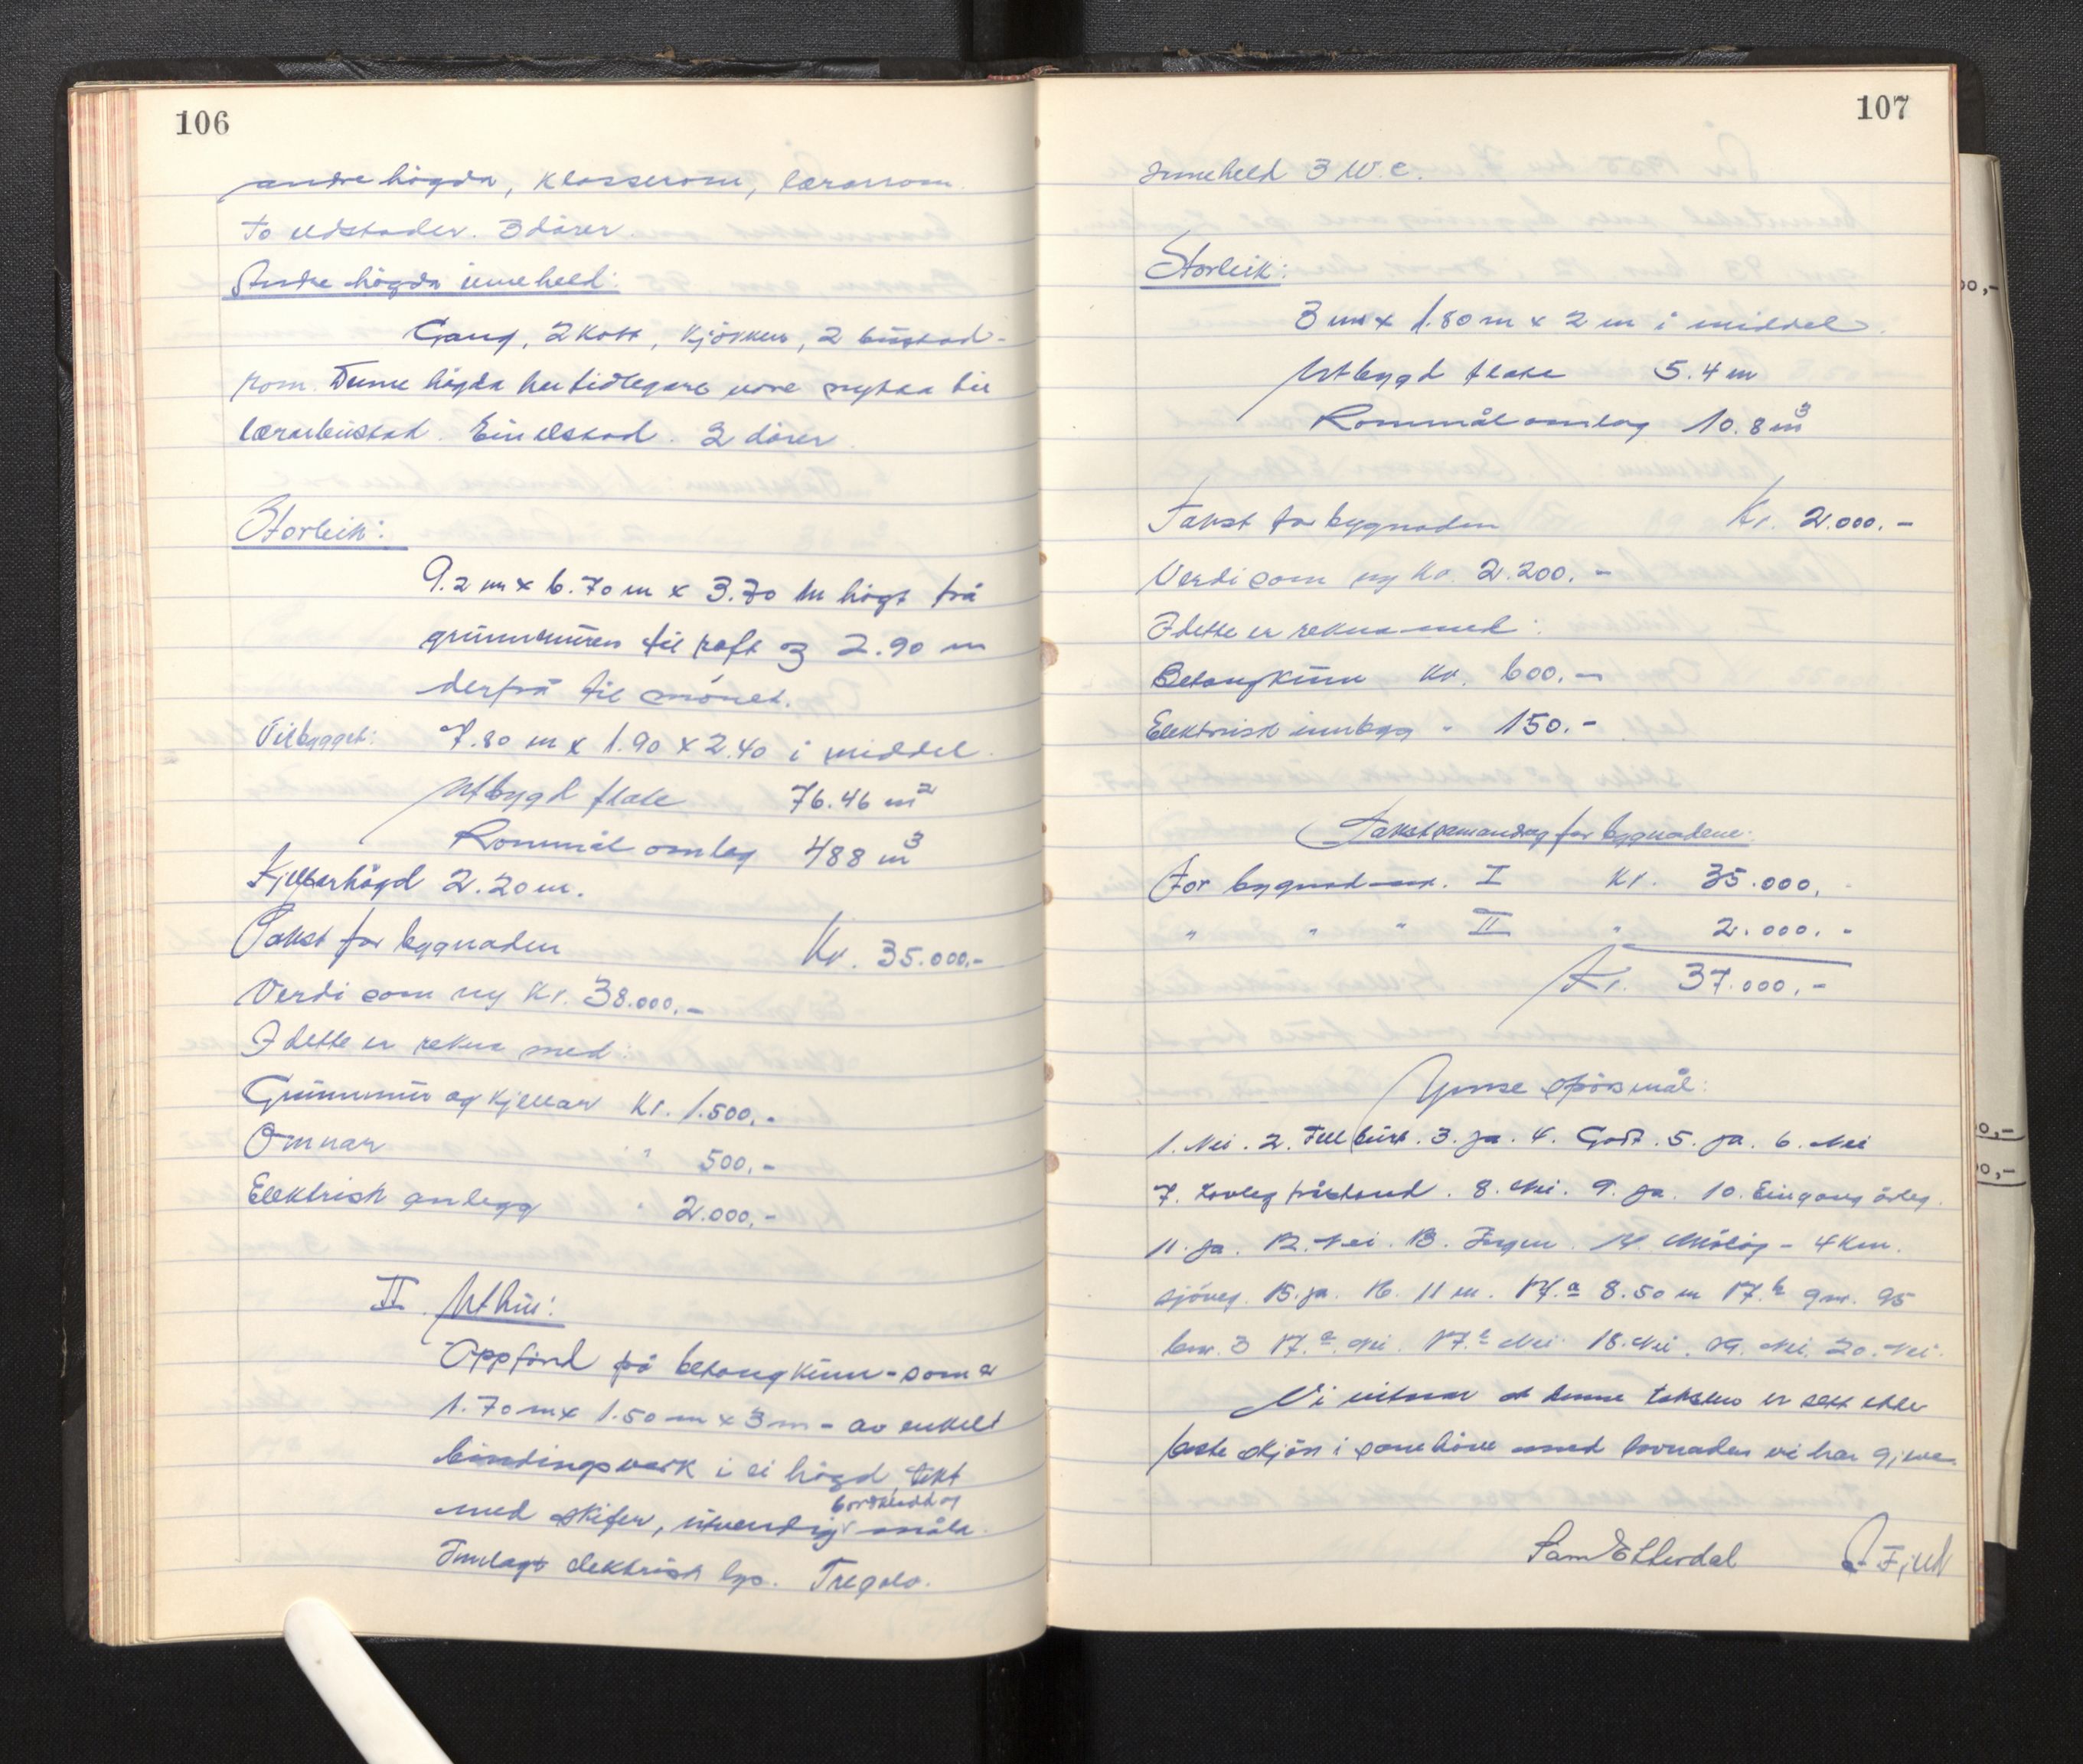 106
andre högda, klasserom, lærarrom.
To eldstader. 3 dörer.
Andre högda inneheld:
Gang, 2 kott, kjökken, 2 bustad-
rom. Denne högda her tidlegare vore nytta til
lærarbustad. Ein elstad. 2 dörer.
Storleik:
9.2 m x 6.70 m x 3.70 m högt frå
grunnmuren til raft og 2.90 m
derfrå til mönet.
Tilbygget: 7.80 m x 1.90 x 2.40 i middel.
Utbygd flate 76.46 m²
Rommål omlag 488 m³
Kjellarhögd 2.20 m.
Takst for bygnaden Kr. 35.000,-
Verdi som ny kr. 38.000,-
I dette er rekna med:
Grunnmur og kjellar kr. 1.500,-
Omnar " 500,-
Elektrisk anlegg " 2.000,-
II. Uthus:
Oppförd på betongkum - som er
1.70 m x 1.50 m x 3 m - av enkelt
bindingsverk i ei högd, tekt
bordkledd og
med skifer, utvendig måla.
Innlagt elektrisk lys. Tregolv.
107
Inneheld 3 W.C.
Storleik:
3 m x 1.80 m x 2 m i middel.
Utbygd flate 5.4 m
Rommål omlag 10.8 m³
Takst for bygnaden Kr. 2.000,-
Verdi som ny kr. 2.200,-
I dette er rekna med:
Betongkum kr. 600,-
Elektrisk innlegg " 150,-
Takstsamandrag for bygnadene:
For bygnad nr. I Kr. 35.000,-
" " " II " 2.000,-
Kr. 37.000,-
Ymse spörsmål:
1. Nei. 2. Fullført. 3. Ja. 4. Godt. 5. Ja. 6. Nei
7. Lovleg fråstand. 8. Nei. 9. Ja. 10. Eingong årleg.
11. Ja. 12. Nei. 13. Ingen. 14. - 4 km.
sjöveg. 15. Ja. 16. 11 m. 17.a 8.50 m 17.b gnr. 95
bnr. 3 17.c Nei. 17.d Nei. 18. Nei. 19. Nei. 20. Nei.
Vi vitnar at denne taksten er sett etter
beste skjön i samhöve med lovnaden vi har gjeve.
Sam Etterdal